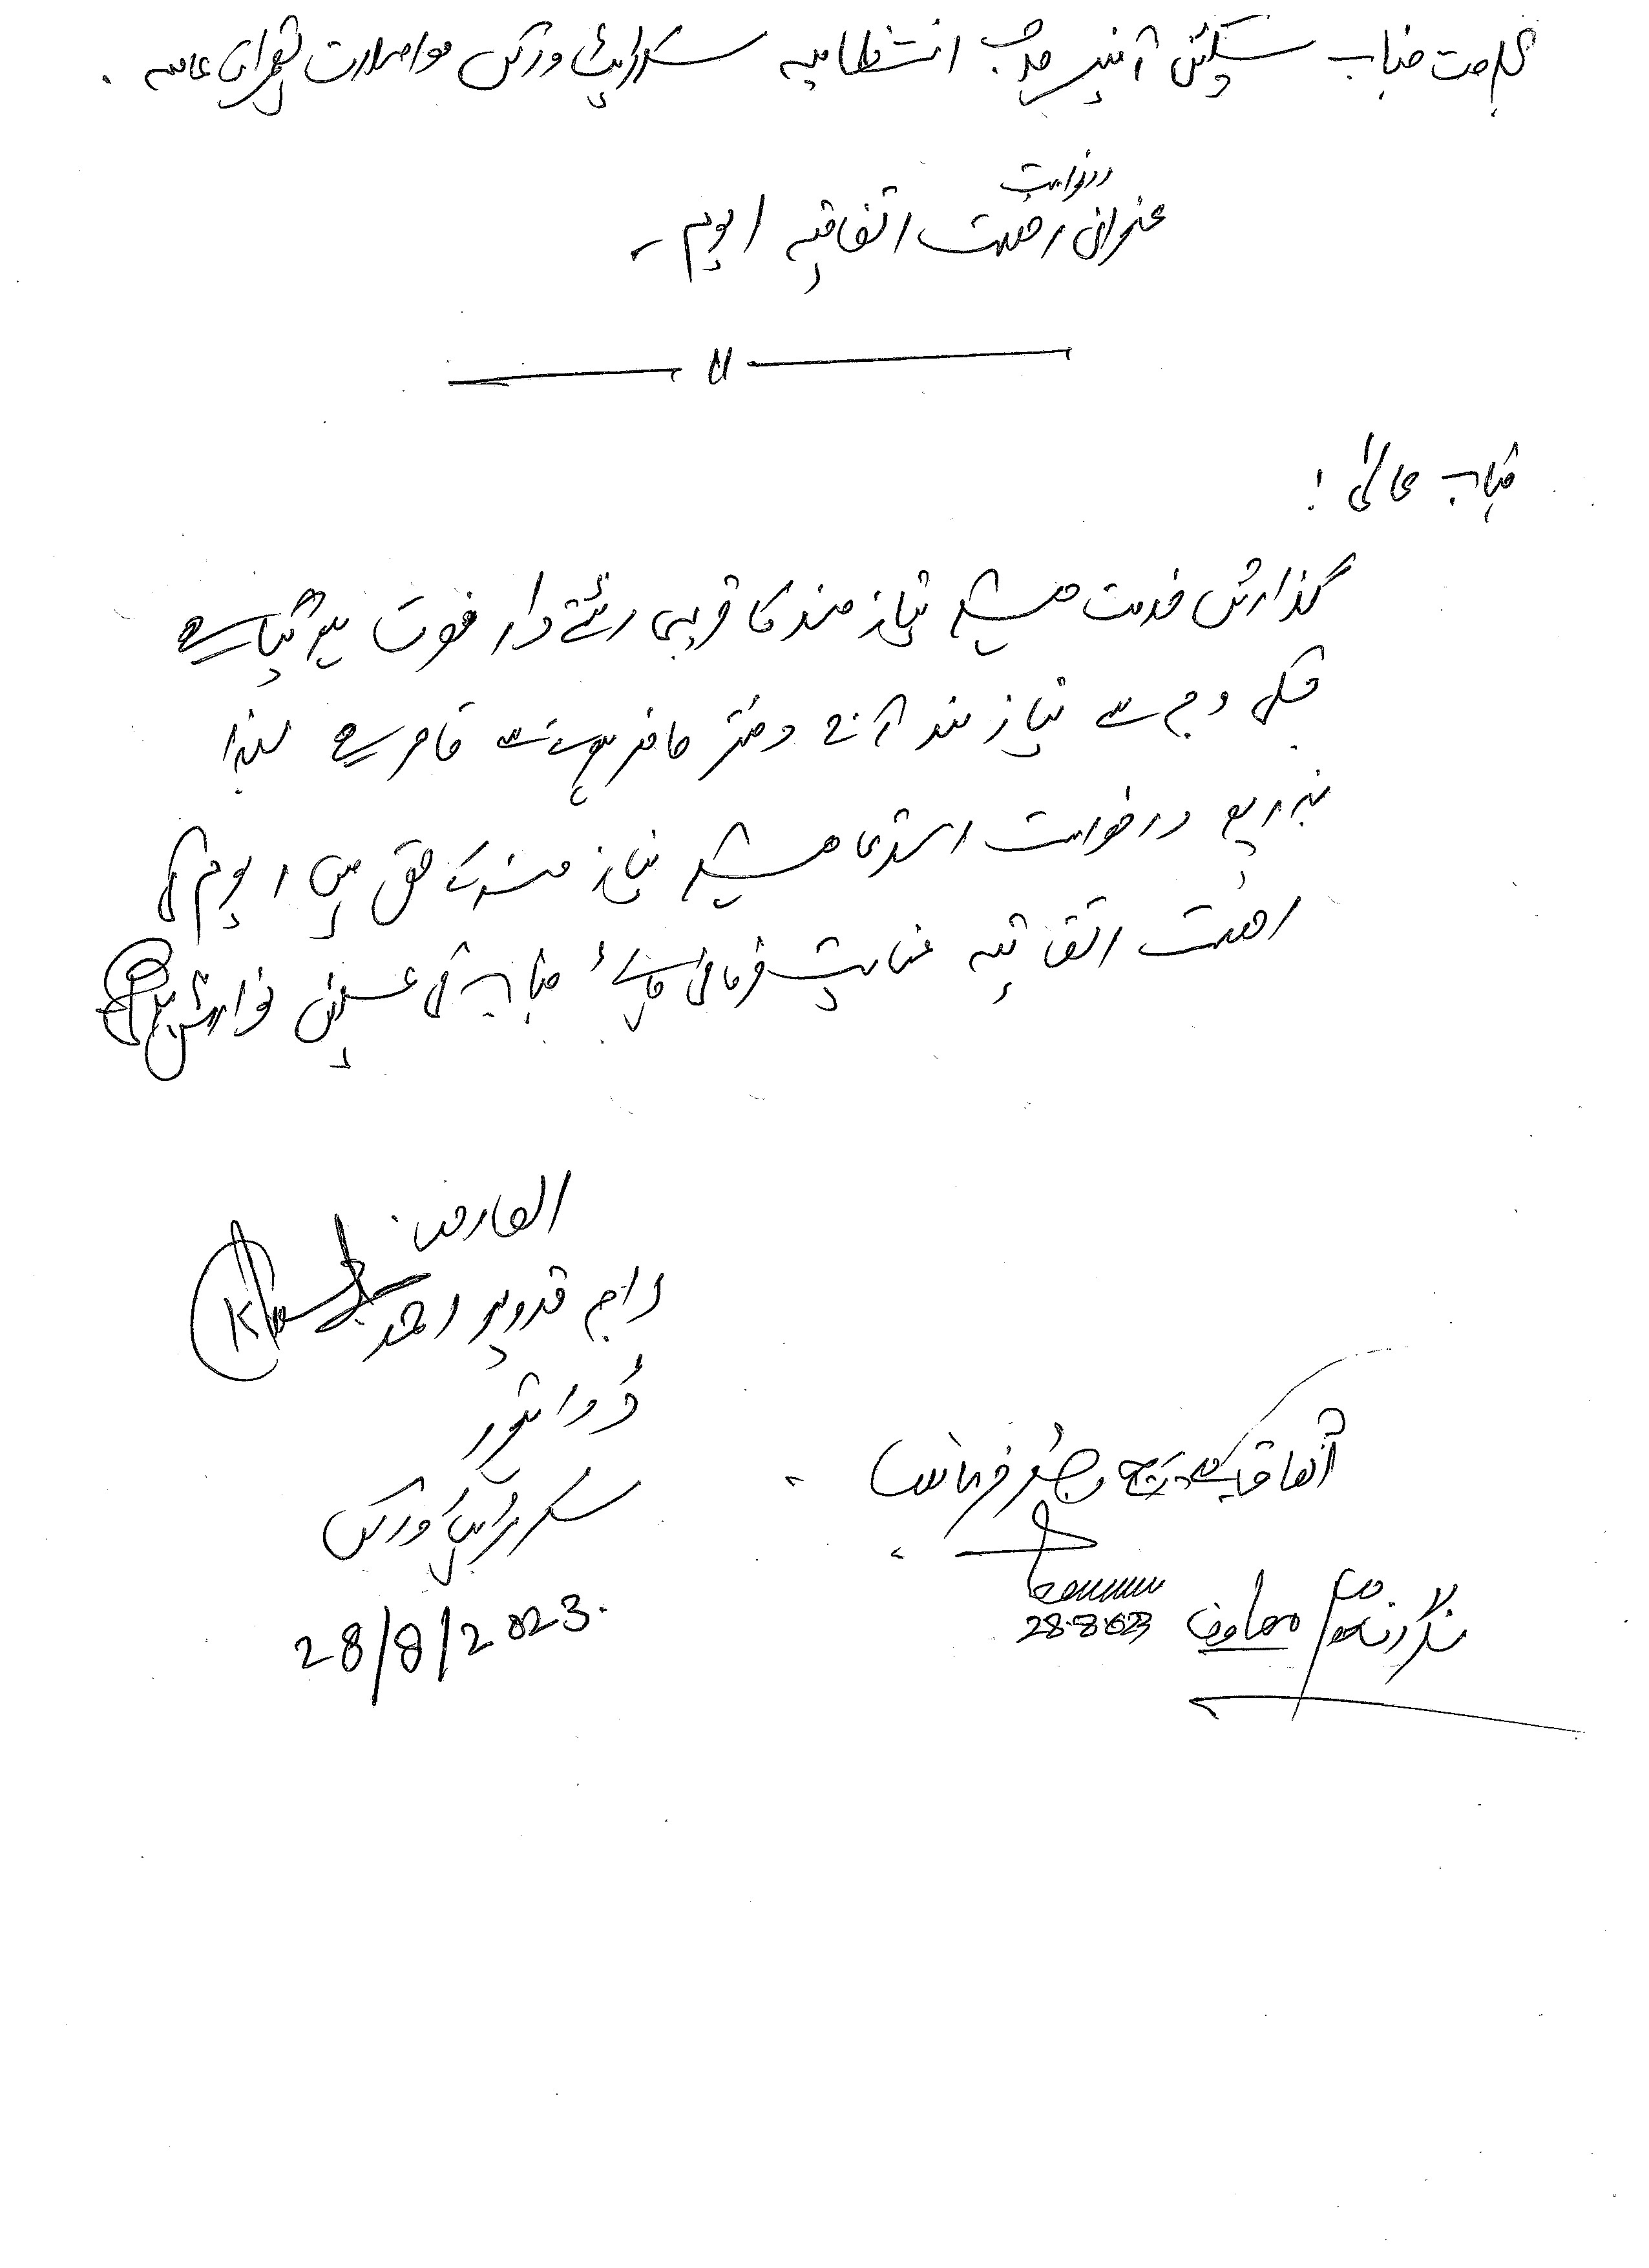 بخدمت جناب سیکشن آفیسر صاحب انتظامیہ سیکرٹریٹ ورکس مواصلات تعمیرات عامہ
درخواست
عنوان رخصت اتفاقیہ 1 یوم ۔
جناب عالی !
گذارش خدمت ہیکہ نیازمند کا قریبی رشتے دار فوت ہو گیا ہے
جسکی وجہ سے نیاز مند آج دفتر حاضر ہونے سے قاصر ہے لہذا
بذریعہ درخواست استدعا ہیکہ نیاز مند کے حق میں 1 یوم کی
رخصت اتفاقیہ عنایت فرمائی جائے جناب کی عین نوازش ہوگی
العارض
راجہ قدیر احمد
ڈرائیور
سیکرٹریٹ ورکس
28/8/2023
اتفاقیہ درج رجسٹر فرمائیں
28-8-023